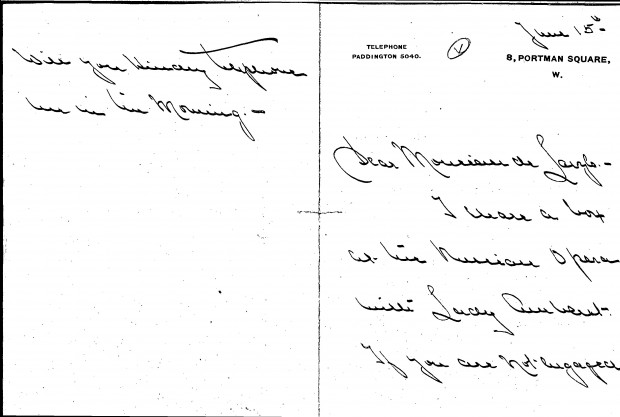 Will you kindly telephone
me in the Morning.—
June 15th
TELEPHONE
PADDINGTON 5040.
8, PORTMAN SQUARE,
W.
Dear Monsieur de Laszlo.—
I have a box
at the Russian Opera
with Lady
If you are not engaged